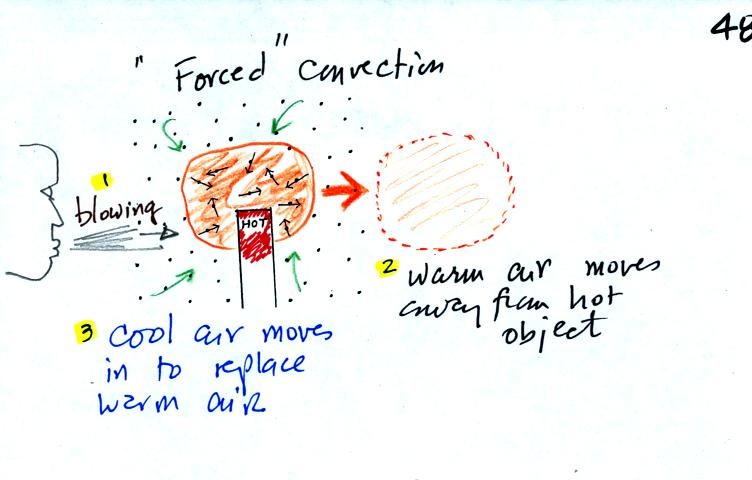 48
" Forced " Convection
1
blowing
HOT
2 warm air moves
away from hot
object
3 cool air moves
in to replace
warm air